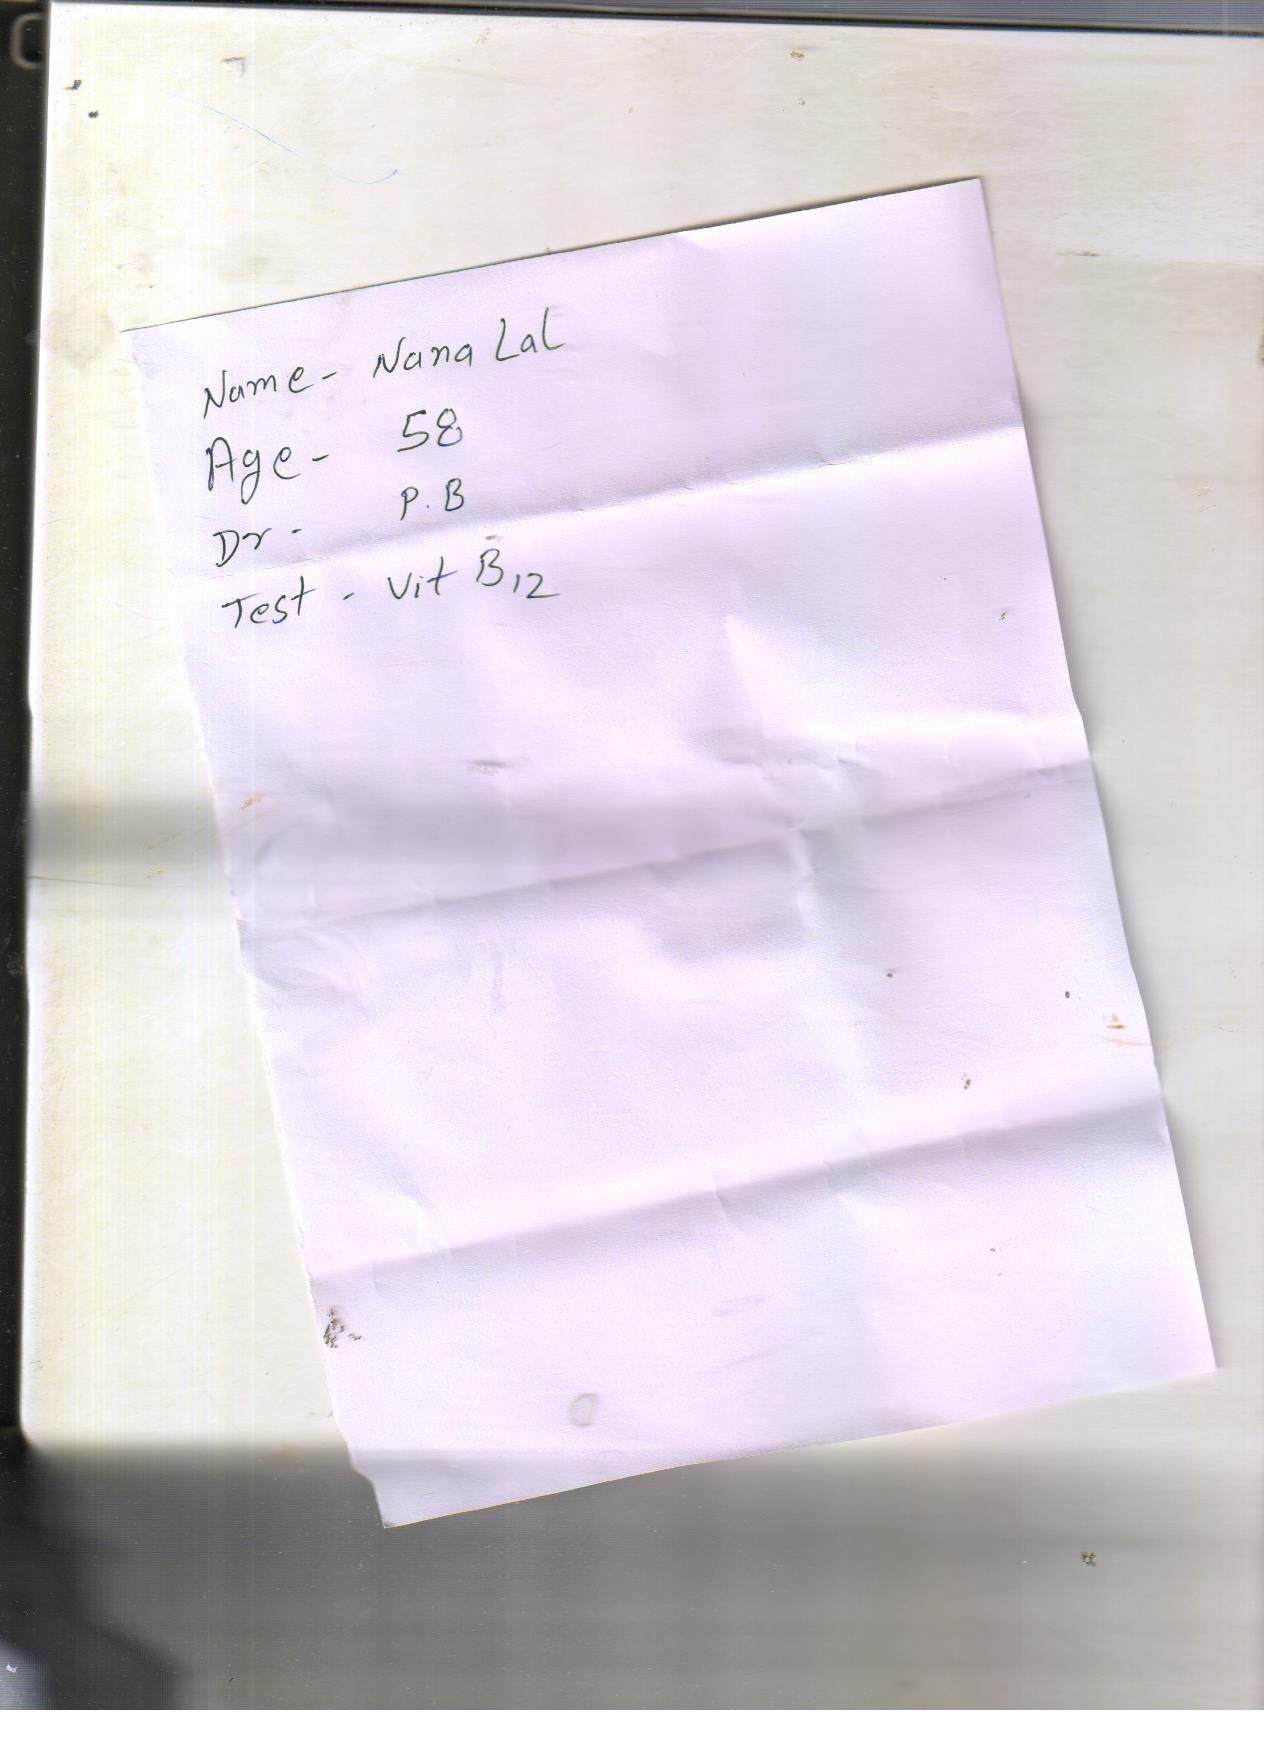 Name - Nana Lal
Age - 58
Dr - P.B
Test - Vit B12